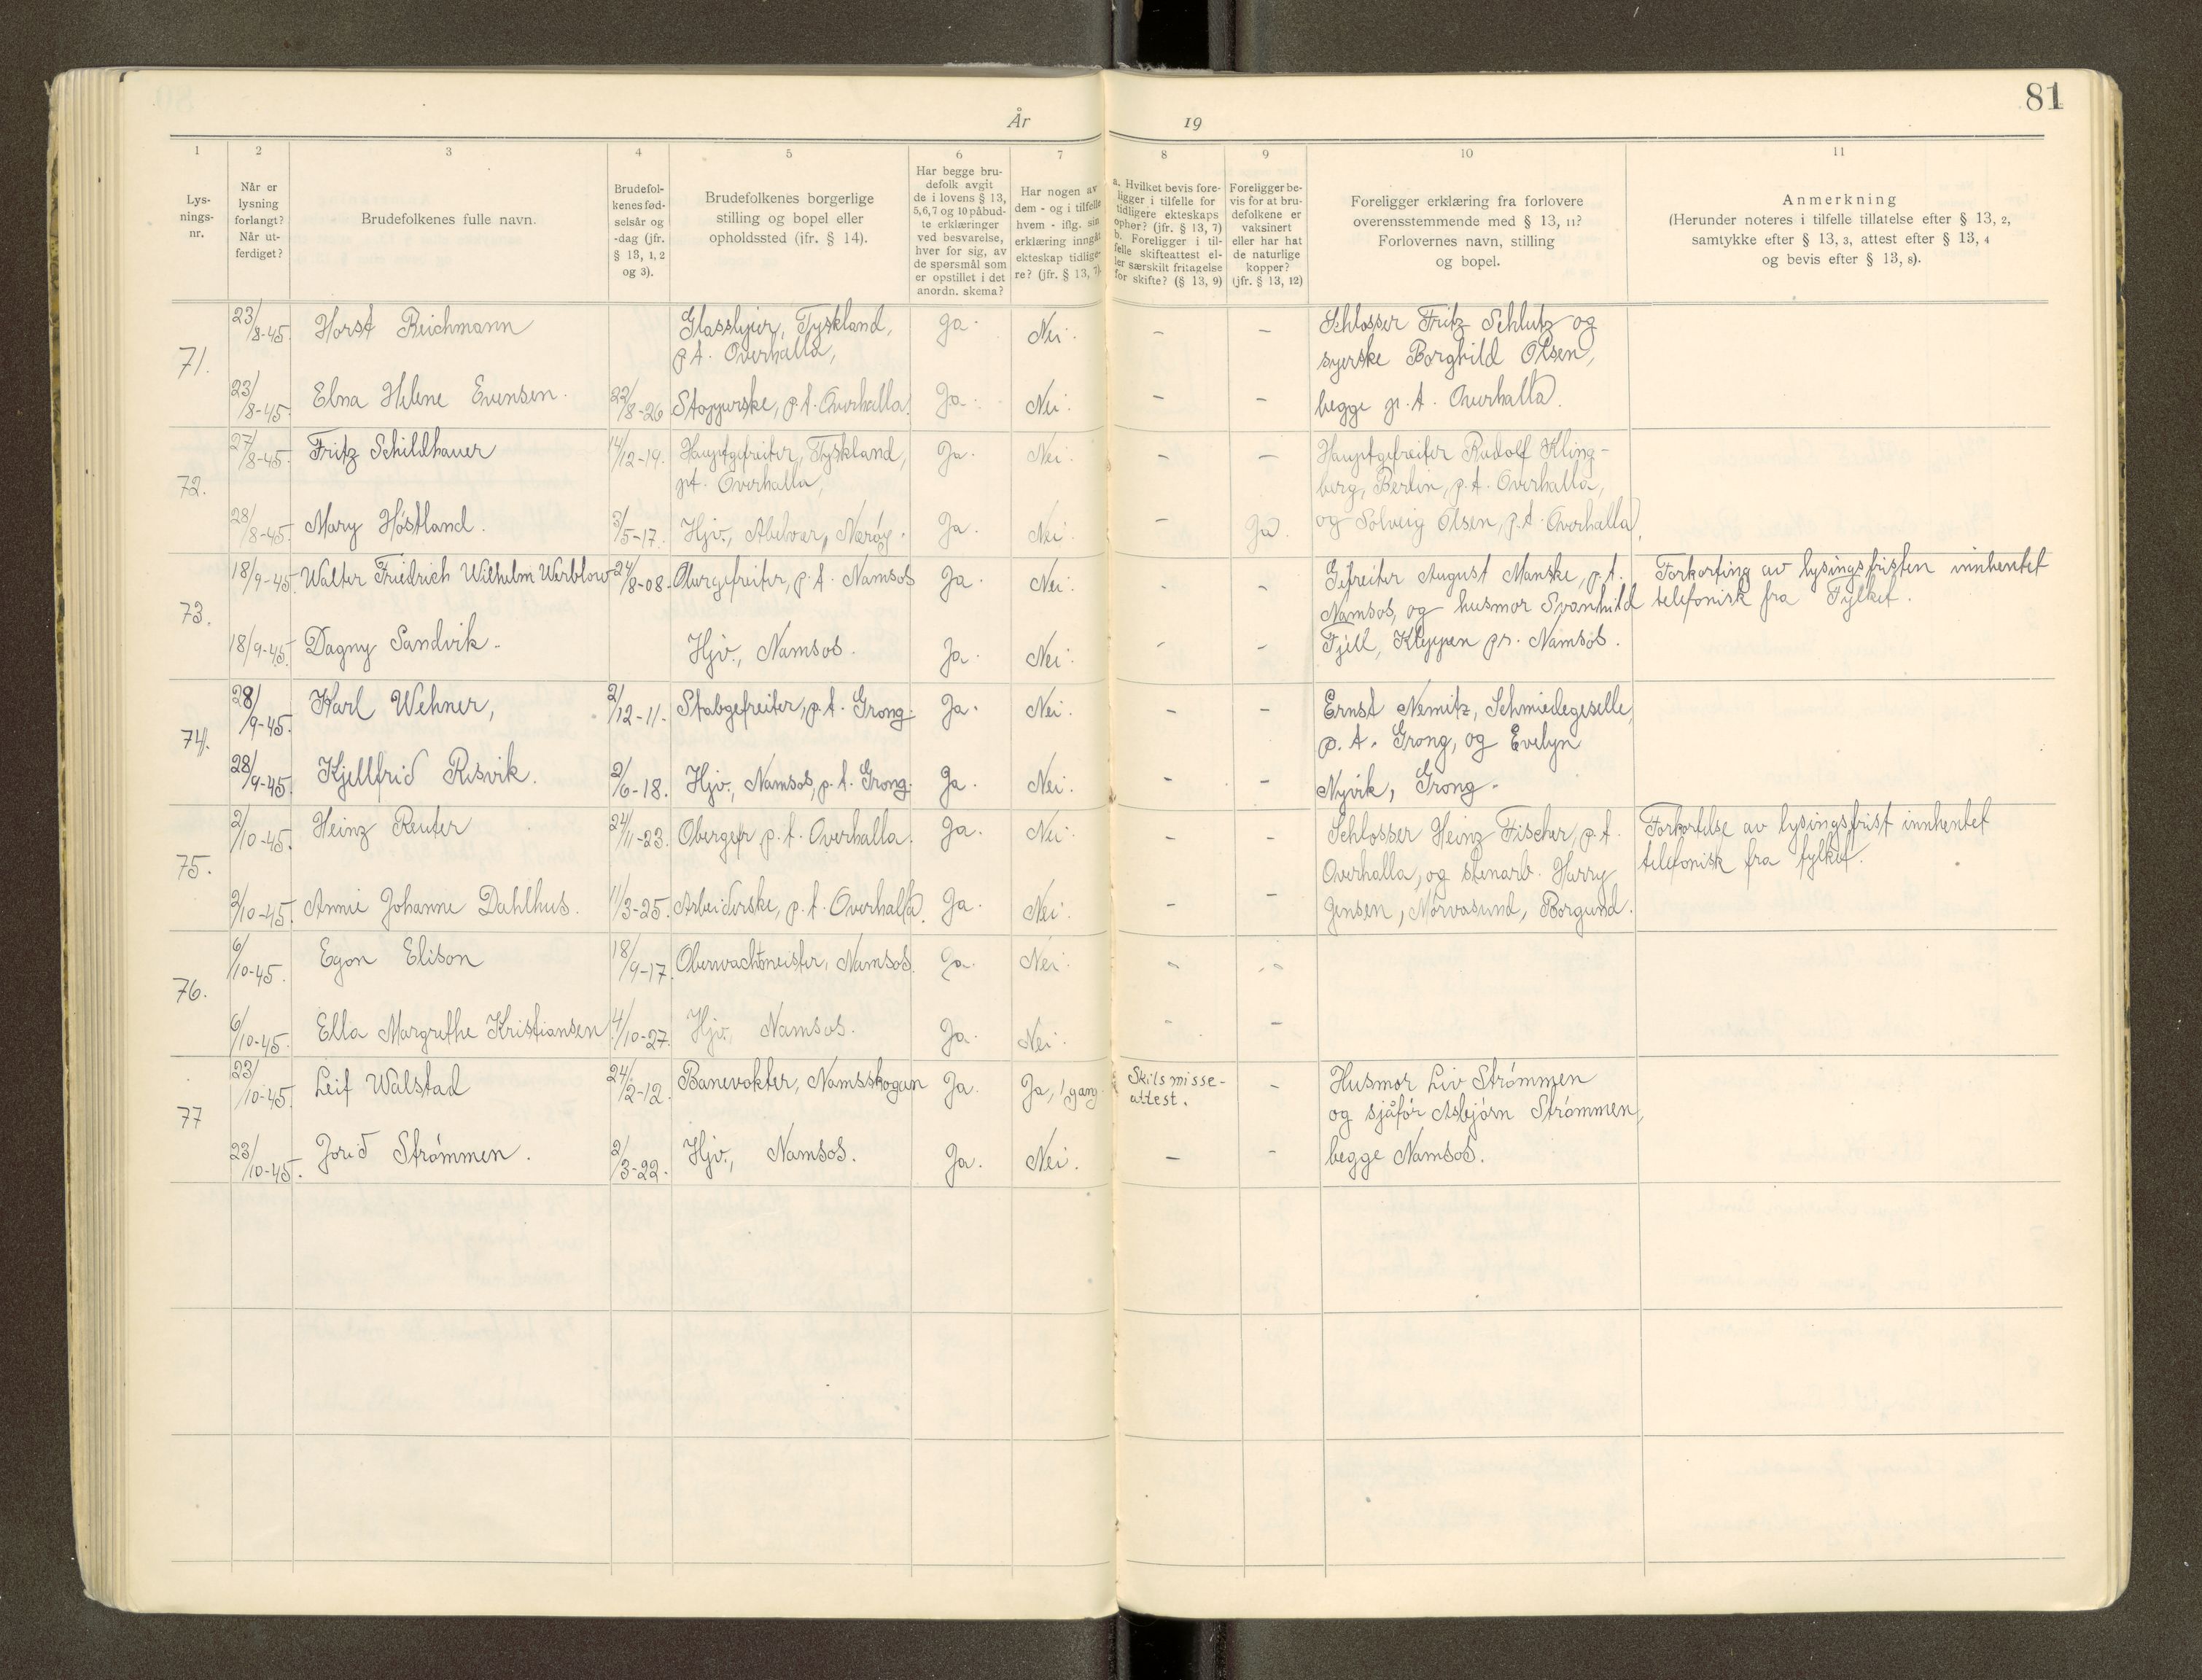 81
År 19
1 2 3 4 5 6 7 8 9 10 11
Lys-
nings-
nr.
Når er
lysning
forlangt?
Når ut-
ferdiget?
Brudefolkenes fulle navn.
Brudefol-
kenes fød-
selsår og
-dag (jfr.
§ 13, 1, 2
og 3).
Brudefolkenes borgerlige
stilling og bopel eller
opholdssted (jfr. § 14).
Har begge bru-
defolk avgit
de i lovens § 13,
5,6,7 og 10 påbud-
te erklæringer
ved besvarelse,
hver for sig, av
de spørsmål som
er opstillet i det
anordn. skema?
Har nogen av
dem - og i tilfelle
hvem - iflg. sin
erklæring inngåt
ekteskap tidlige-
re? (jfr. § 13, 7).
a. Hvilket bevis fore-
ligger i tilfelle for
tidligere ekteskaps
ophør? (jfr. § 13, 7)
b. Foreligger i til-
felle skifteattest el-
ler særskilt fritagelse
for skifte? (§ 13, 9)
Foreligger be-
vis for at bru-
defolkene er
vaksinert
eller har hat
de naturlige
kopper?
(jfr. § 13, 12)
Foreligger erklæring fra forlovere
overensstemmende med § 13, 11?
Forlovernes navn, stilling
og bopel.
Anmerkning
(Herunder noteres i tilfelle tillatelse efter § 13, 2,
samtykke efter § 13, 3, attest efter § 13, 4
og bevis efter § 13, 8).
71.
23/8-45. Horst Reichmann
Tyskland,
p.t. Overhalla,
Ja. Nei. - -
Schlosser Fritz Schlutz og
syerske Borghild Olsen,
23/8-45. Elna Helene Evensen. 22/8-26 Stopperske, p.t. Overhalla. Ja. Nei. - -
begge p.t. Overhalla.
72.
27/8-45. Fritz Schildhauer 14/12-14. Hauptgefreiter, Tyskland,
pt. Overhalla,
Ja. Nei. - -
Hauptgefreiter Rudolf Kling-
berg, Berlin, p.t. Overhalla,
28/8-45. Mary Høstland. 3/5-17. Hjv., Abelvær, Nærøy. Ja. Nei. - Ja.
og Solveig Olsen, p.t. Overhalla.
73.
18/9-45. Walter Friedrich Wilhelm Werblow 24/8-08. Obergefreiter, p.t. Namsos Ja. Nei. - -
Gefreiter August Manske, p.t.
Namsos, og husmor Svanhild
Forkorting av lysingsfristen innhentet
telefonisk fra Fylket.
18/9-45. Dagny Sandvik. Hjv., Namsos. Ja. Nei. - -
Fjell, Kleppen pr. Namsos.
74.
28/9-45. Karl Wehner, 2/12-11. Stabgefreiter, p.t. Grong. Ja. Nei. - -
Ernst Nemitz, Schmiedegeselle,
p.t. Grong, og Evelyn
28/9-45. Kjellfrid Risvik. 2/6-18. Hjv., Namsos, p.t. Grong. Ja. Nei. - -
Nyvik, Grong.
75.
2/10-45. Heinz Reuter 24/11-23. Obergefr p.t. Overhalla. Ja. Nei. - -
Schlosser Heinz Fischer, p.t.
Overhalla, og stenarb. Harry
Forkortelse av lysingsfrist innhentet
telefonisk fra fylket.
2/10-45. Annie Johanne Dahlhus. 11/3-25. Arbeiderske, p.t. Overhalla. Ja. Nei. - -
Jensen, Nørvasund, Borgund.
76.
6/10-45. Egon Elison 18/9-17. Oberwachtmeister, Namsos. Ja. Nei. - -
6/10-45. Ella Margrethe Kristiansen 4/10-27. Hjv., Namsos. Ja. Nei. - -
77
23/10-45. Leif Walstad 24/2-12. Banevokter, Namsskogan Ja. Ja, 1 gang. Skilsmisse-
attest. -
Husmor Liv Strømmen
og sjåfør Asbjørn Strømmen,
23/10-45. Jorid Strømmen. 2/3-22. Hjv., Namsos. Ja. Nei. - -
begge Namsos.